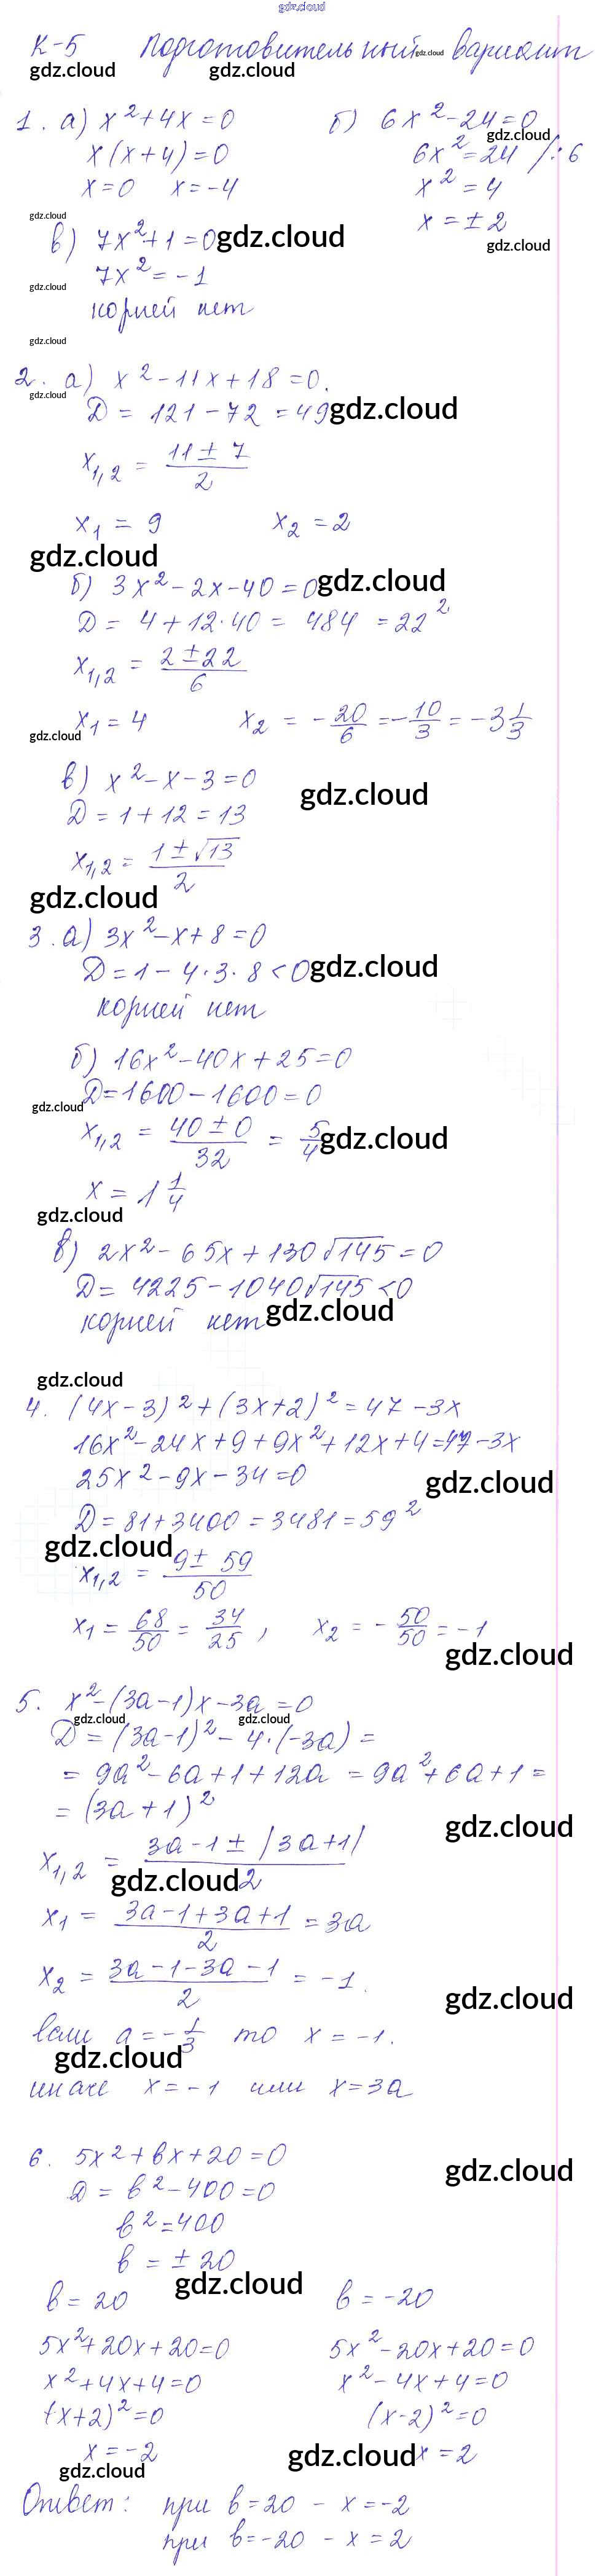 gdz.cloud
К-5 Подготовительный gdz.cloud вариант
gdz.cloud gdz.cloud
1. а) x² + 4x = 0 б) 6x² - 24 = 0
gdz.cloud
x(x + 4) = 0 6x² = 24 /:6
x = 0 x = -4 x² = 4
gdz.cloud x = ± 2
в) 7x² + 1 = 0 gdz.cloud gdz.cloud
7x² = -1
gdz.cloud
корней нет
gdz.cloud
2. а) x² - 11x + 18 = 0.
gdz.cloud
D = 121 - 72 = 49 gdz.cloud
x₁,₂ = (11 ± 7)/2
x₁ = 9 x₂ = 2
gdz.cloud
б) 3x² - 2x - 40 = 0 gdz.cloud
D = 4 + 12·40 = 484 = 22²
x₁,₂ = (2 ± 22)/6
x₁ = 4 x₂ = -20/6 = -10/3 = -3 1/3
gdz.cloud
в) x² - x - 3 = 0
gdz.cloud
D = 1 + 12 = 13
x₁,₂ = (1 ± √13)/2
gdz.cloud
3. а) 3x² - x + 8 = 0
D = 1 - 4·3·8 < 0 gdz.cloud
корней нет
б) 16x² - 40x + 25 = 0
D = 1600 - 1600 = 0
gdz.cloud
x₁,₂ = (40 ± 0)/32 = 5/4 gdz.cloud
x = 1 1/4
gdz.cloud
в) 2x² - 65x + 130√145 = 0
D = 4225 - 1040√145 < 0
корней нет gdz.cloud
gdz.cloud
4. (4x - 3)² + (3x + 2)² = 47 - 3x
16x² - 24x + 9 + 9x² + 12x + 4 = 47 - 3x
25x² - 9x - 34 = 0 gdz.cloud
D = 81 + 3400 = 3481 = 59²
gdz.cloud
x₁,₂ = (9 ± 59)/50
x₁ = 68/50 = 34/25, x₂ = -50/50 = -1
gdz.cloud
5. x² - (3a - 1)x - 3a = 0
gdz.cloud gdz.cloud
D = (3a - 1)² - 4·(-3a) =
= 9a² - 6a + 1 + 12a = 9a² + 6a + 1 =
= (3a + 1)²
gdz.cloud
x₁,₂ = (3a - 1 ± |3a + 1|)/2
gdz.cloud
x₁ = (3a - 1 + 3a + 1)/2 = 3a
x₂ = (3a - 1 - 3a - 1)/2 = -1.
gdz.cloud
если a = -1/3 то x = -1.
gdz.cloud
иначе x = -1 или x = 3a
6. 5x² + bx + 20 = 0
gdz.cloud
D = b² - 400 = 0
b² = 400
b = ± 20
gdz.cloud
b = 20 b = -20
5x² + 20x + 20 = 0 5x² - 20x + 20 = 0
x² + 4x + 4 = 0 x² - 4x + 4 = 0
(x + 2)² = 0 (x - 2)² = 0
x = -2 gdz.cloud x = 2
gdz.cloud
Ответ: при b = 20 - x = -2
при b = -20 - x = 2